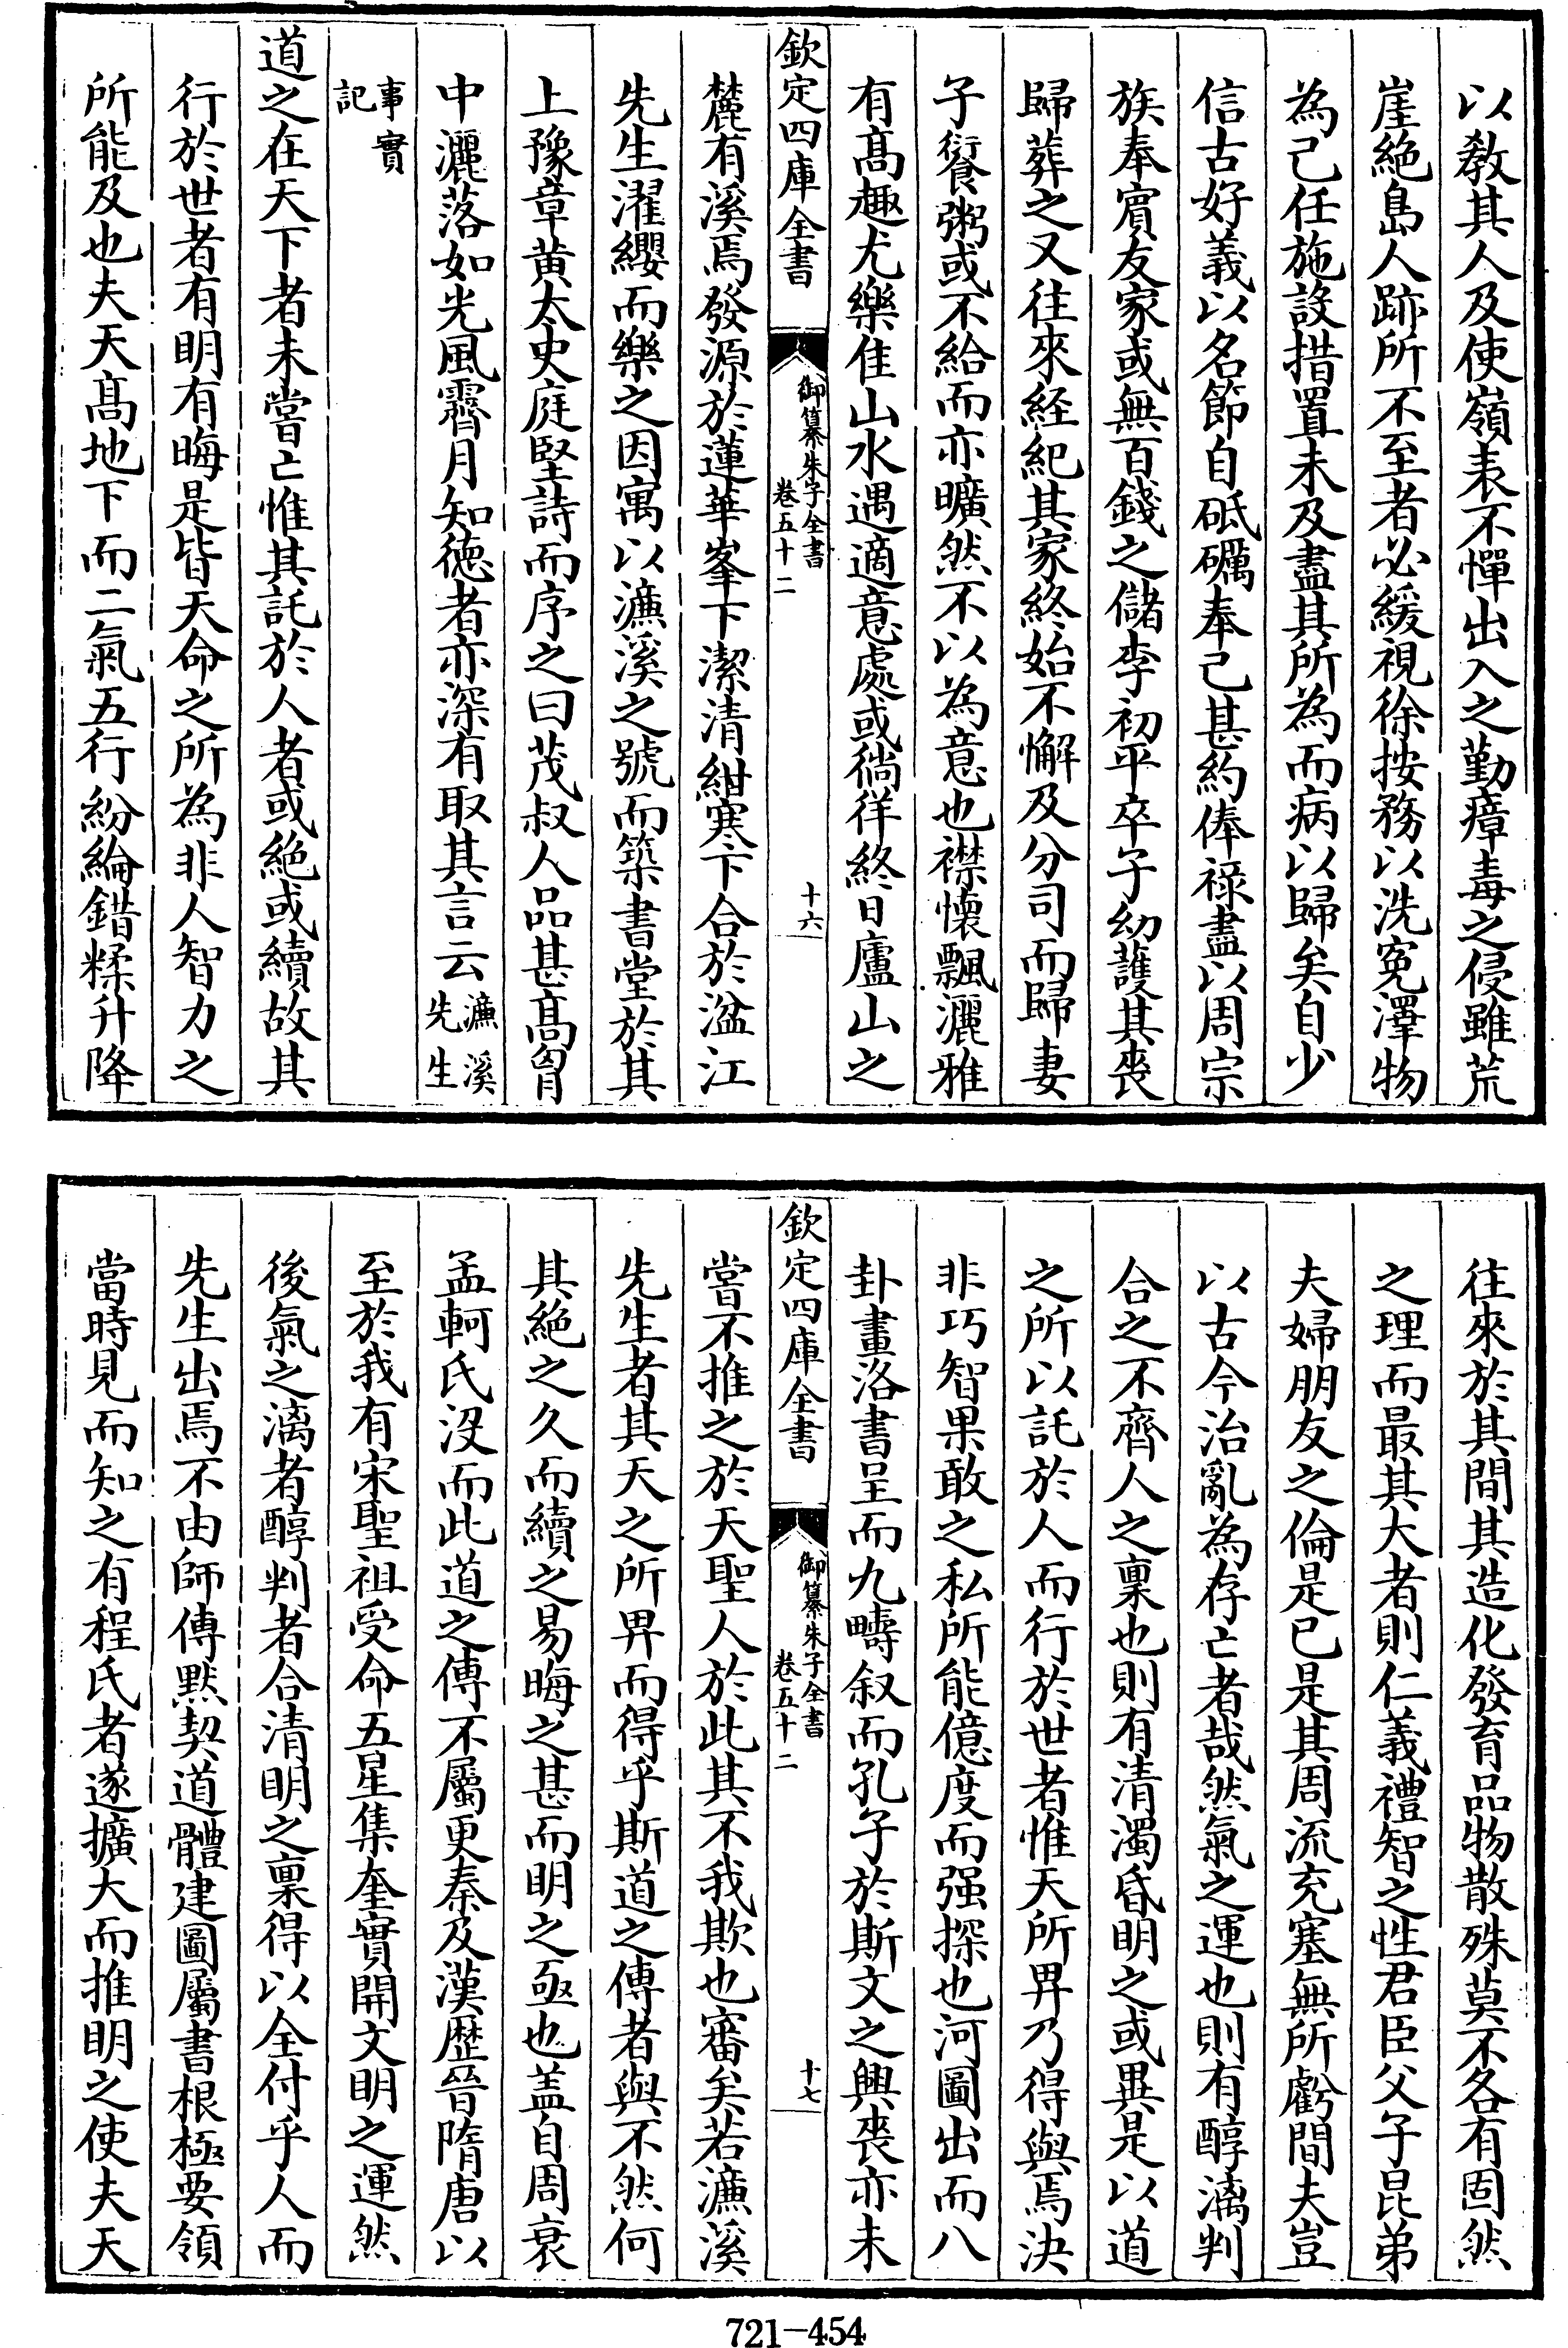 以教其人及使嶺表不憚出入之勤瘴毒之侵雖荒
崖絶島人跡所不至者必緩視徐按務以洗寃澤物
為己任施設措置未及盡其所為而病以歸矣自少
信古好義以名節自砥礪奉己甚約俸禄盡以周宗
族奉賔友家或無百錢之儲李初平卒子幼護其喪
歸葬之又往來經紀其家終始不懈及分司而歸妻
子饘粥或不給而亦曠然不以為意也襟懷飄灑雅
有髙趣尤樂佳山水遇適意處或徜徉終日廬山之
欽定四庫全書
御纂朱子全書
卷五十二
十六
麓有溪焉發源於蓮華峯下潔清紺寒下合於湓江
先生濯纓而樂之因寓以濂溪之號而築書堂於其
上豫章黄太史庭堅詩而序之曰茂叔人品甚髙胷
中灑落如光風霽月知德者亦深有取其言云濂溪先生
事實記
道之在天下者未嘗亡惟其託於人者或絶或續故其
行於世者有明有晦是皆天命之所為非人智力之
所能及也夫天髙地下而二氣五行紛綸錯糅升降
往來於其間其造化發育品物散殊莫不各有固然
之理而最其大者則仁義禮智之性君臣父子昆弟
夫婦朋友之倫是已是其周流充塞無所虧間夫豈
以古今治亂為存亡者哉然氣之運也則有醇漓判
合之不齊人之禀也則有清濁昏明之或異是以道
之所以託於人而行於世者惟天所畀乃得與焉決
非巧智果敢之私所能億度而强探也河圖出而八
卦畫洛書呈而九疇叙而孔子於斯文之興喪亦未
欽定四庫全書
御纂朱子全書
卷五十二
十七
嘗不推之於天聖人於此其不我欺也審矣若濂溪
先生者其天之所畀而得乎斯道之傳者與不然何
其絶之久而續之易晦之甚而明之亟也盖自周衰
孟軻氏沒而此道之傳不屬更秦及漢歷晉隋唐以
至於我有宋聖祖受命五星集奎實開文明之運然
後氣之漓者醇判者合清明之禀得以全付乎人而
先生出焉不由師傳默契道體建圖屬書根極要領
當時見而知之有程氏者遂擴大而推明之使夫天
721-454